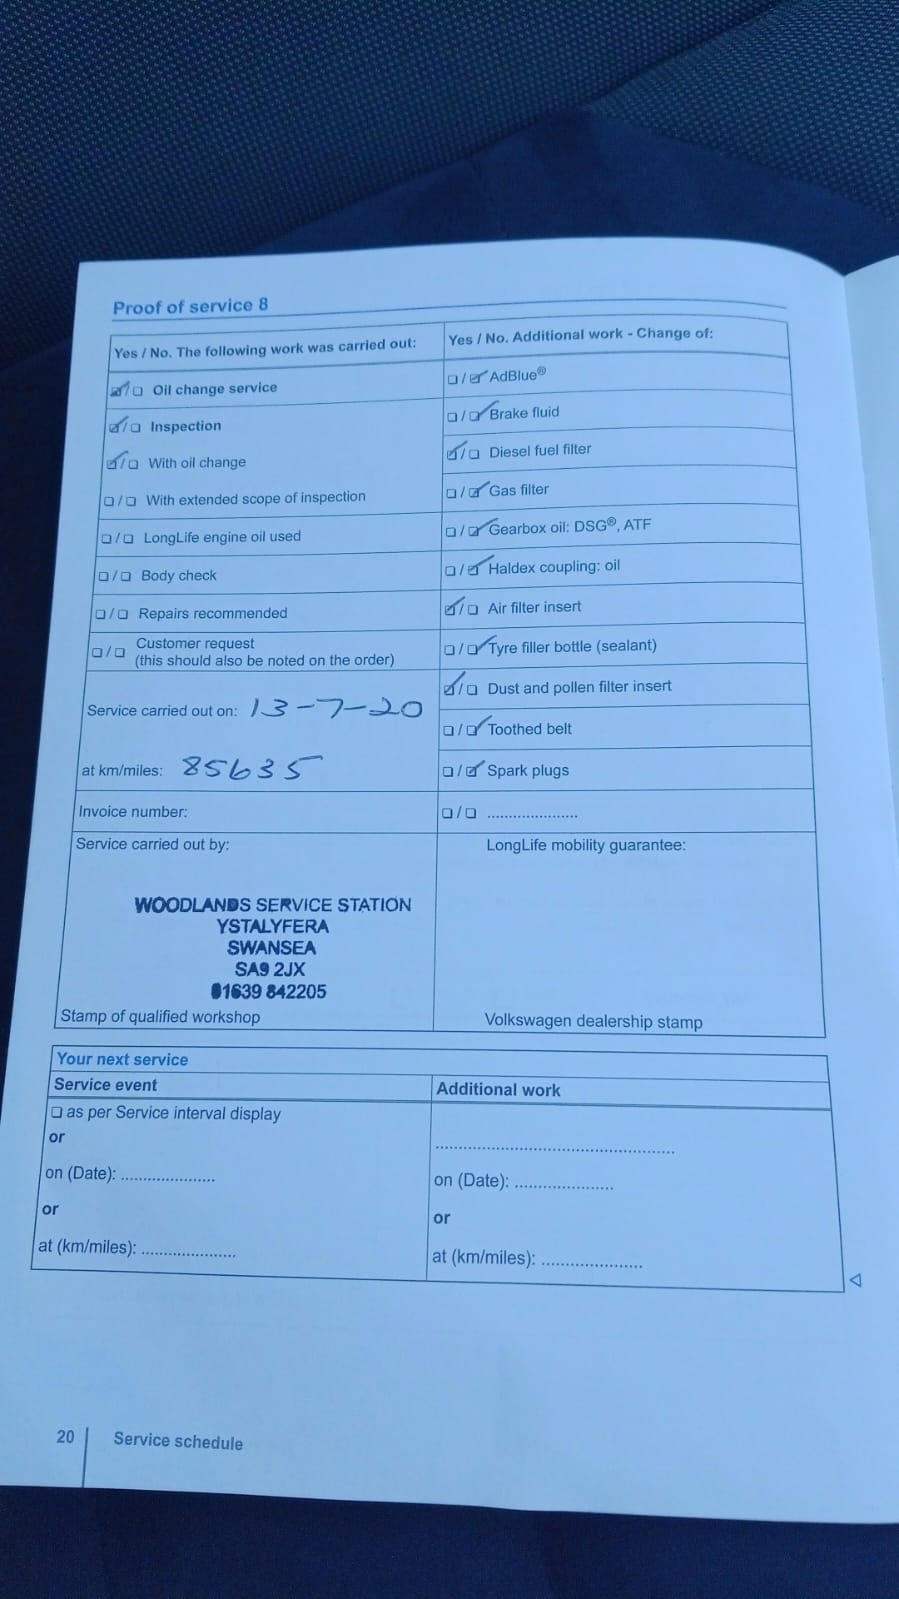 Proof of service 8
Yes / No. The following work was carried out:
☑/☐ Oil change service
☑/☐ Inspection
☑/☐ With oil change
☐/☐ With extended scope of inspection
☐/☐ LongLife engine oil used
☐/☐ Body check
☐/☐ Repairs recommended
☐/☐ Customer request
(this should also be noted on the order)
Service carried out on: 13-7-20
at km/miles: 85635
Invoice number:
Service carried out by:
WOODLANDS SERVICE STATION
YSTALYFERA
SWANSEA
SA9 2JX
01639 842205
Stamp of qualified workshop
Yes / No. Additional work - Change of:
☐/☑ AdBlue®
☐/☑ Brake fluid
☑/☐ Diesel fuel filter
☐/☑ Gas filter
☐/☑ Gearbox oil: DSG®, ATF
☐/☑ Haldex coupling: oil
☑/☐ Air filter insert
☐/☑ Tyre filler bottle (sealant)
☑/☐ Dust and pollen filter insert
☐/☑ Toothed belt
☐/☑ Spark plugs
☐/☐ .....................
LongLife mobility guarantee:
Volkswagen dealership stamp
Your next service
Service event
☐ as per Service interval display
or
on (Date): .....................
or
at (km/miles): .....................
Additional work
.....................................................
on (Date): ......................
or
at (km/miles): ......................
◁
20 Service schedule